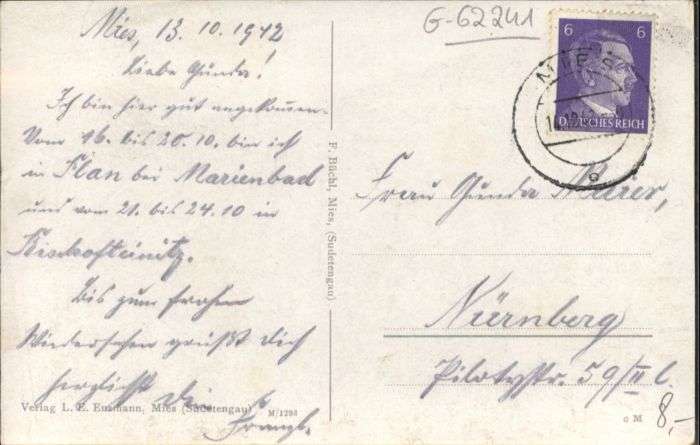 Mies, 13.10.1942
Liebe Gunda!
Ich bin hier gut angekommen.
Vom 16. bis 20.10. bin ich
in Plan bei Marienbad
und vom 21. bis 24.10 in
Bischofteinitz.
Bis zum frohen
Wiedersehen grüßt Dich
herzlichst
Verlag L. E. Enzmann, Mies (Sudetengau) M/1293
F. Büchl, Mies, (Sudetengau)
G-62241
6 6
DEUTSCHES REICH
MIES
Frau Gunda Maier,
Nürnberg
Pilotystr. 59/II l.
c M
8,-